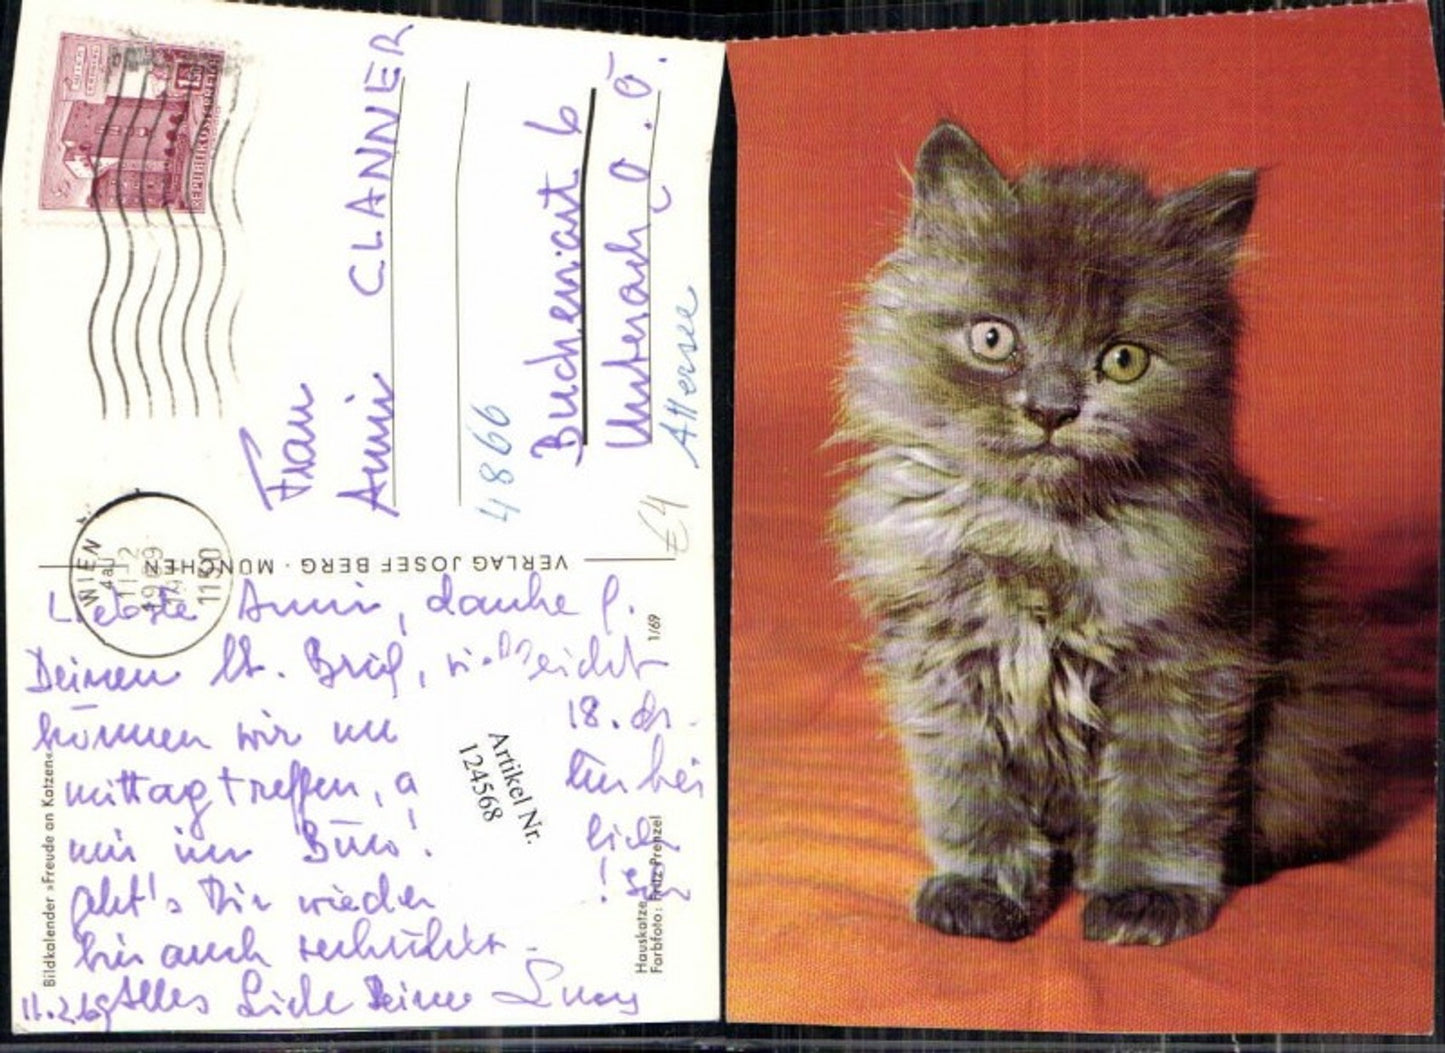 REPUBLIK ÖSTERREICH
1.50
WIEN
11.2
1969
1150
Frau
Anni CLANNER
4866
Buchenort 6
Unterach O.Ö.
Attersee
€4
VERLAG JOSEF BERG · MÜNCHEN
Liebste Anni, danke f.
Deinen lb. Brief, vielleicht
können wir uns 18.
mittag treffen,
mir im Büro!
geht's Dir wieder
bin auch
11.2.69 Alles Liebe Deine Lucy
1/69
Artikel Nr.
124568
Bildkalender »Freude an Katzen«
Hauskatze
Farbfoto: Fritz Prenzel